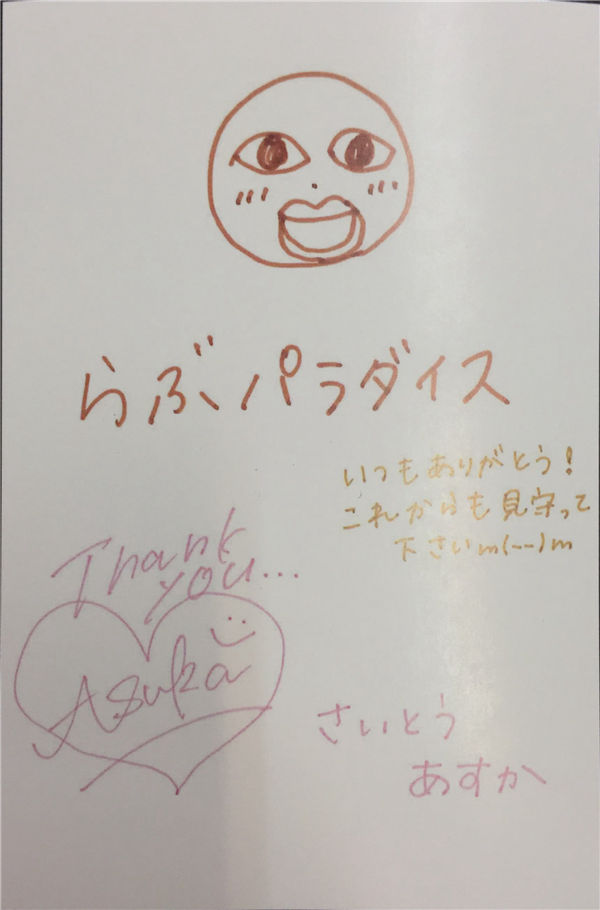 らぶパラダイス
いつもありがとう!
これからも見守って
下さいm(--)m
Thank
you...
Asuka
さいとう
あすか